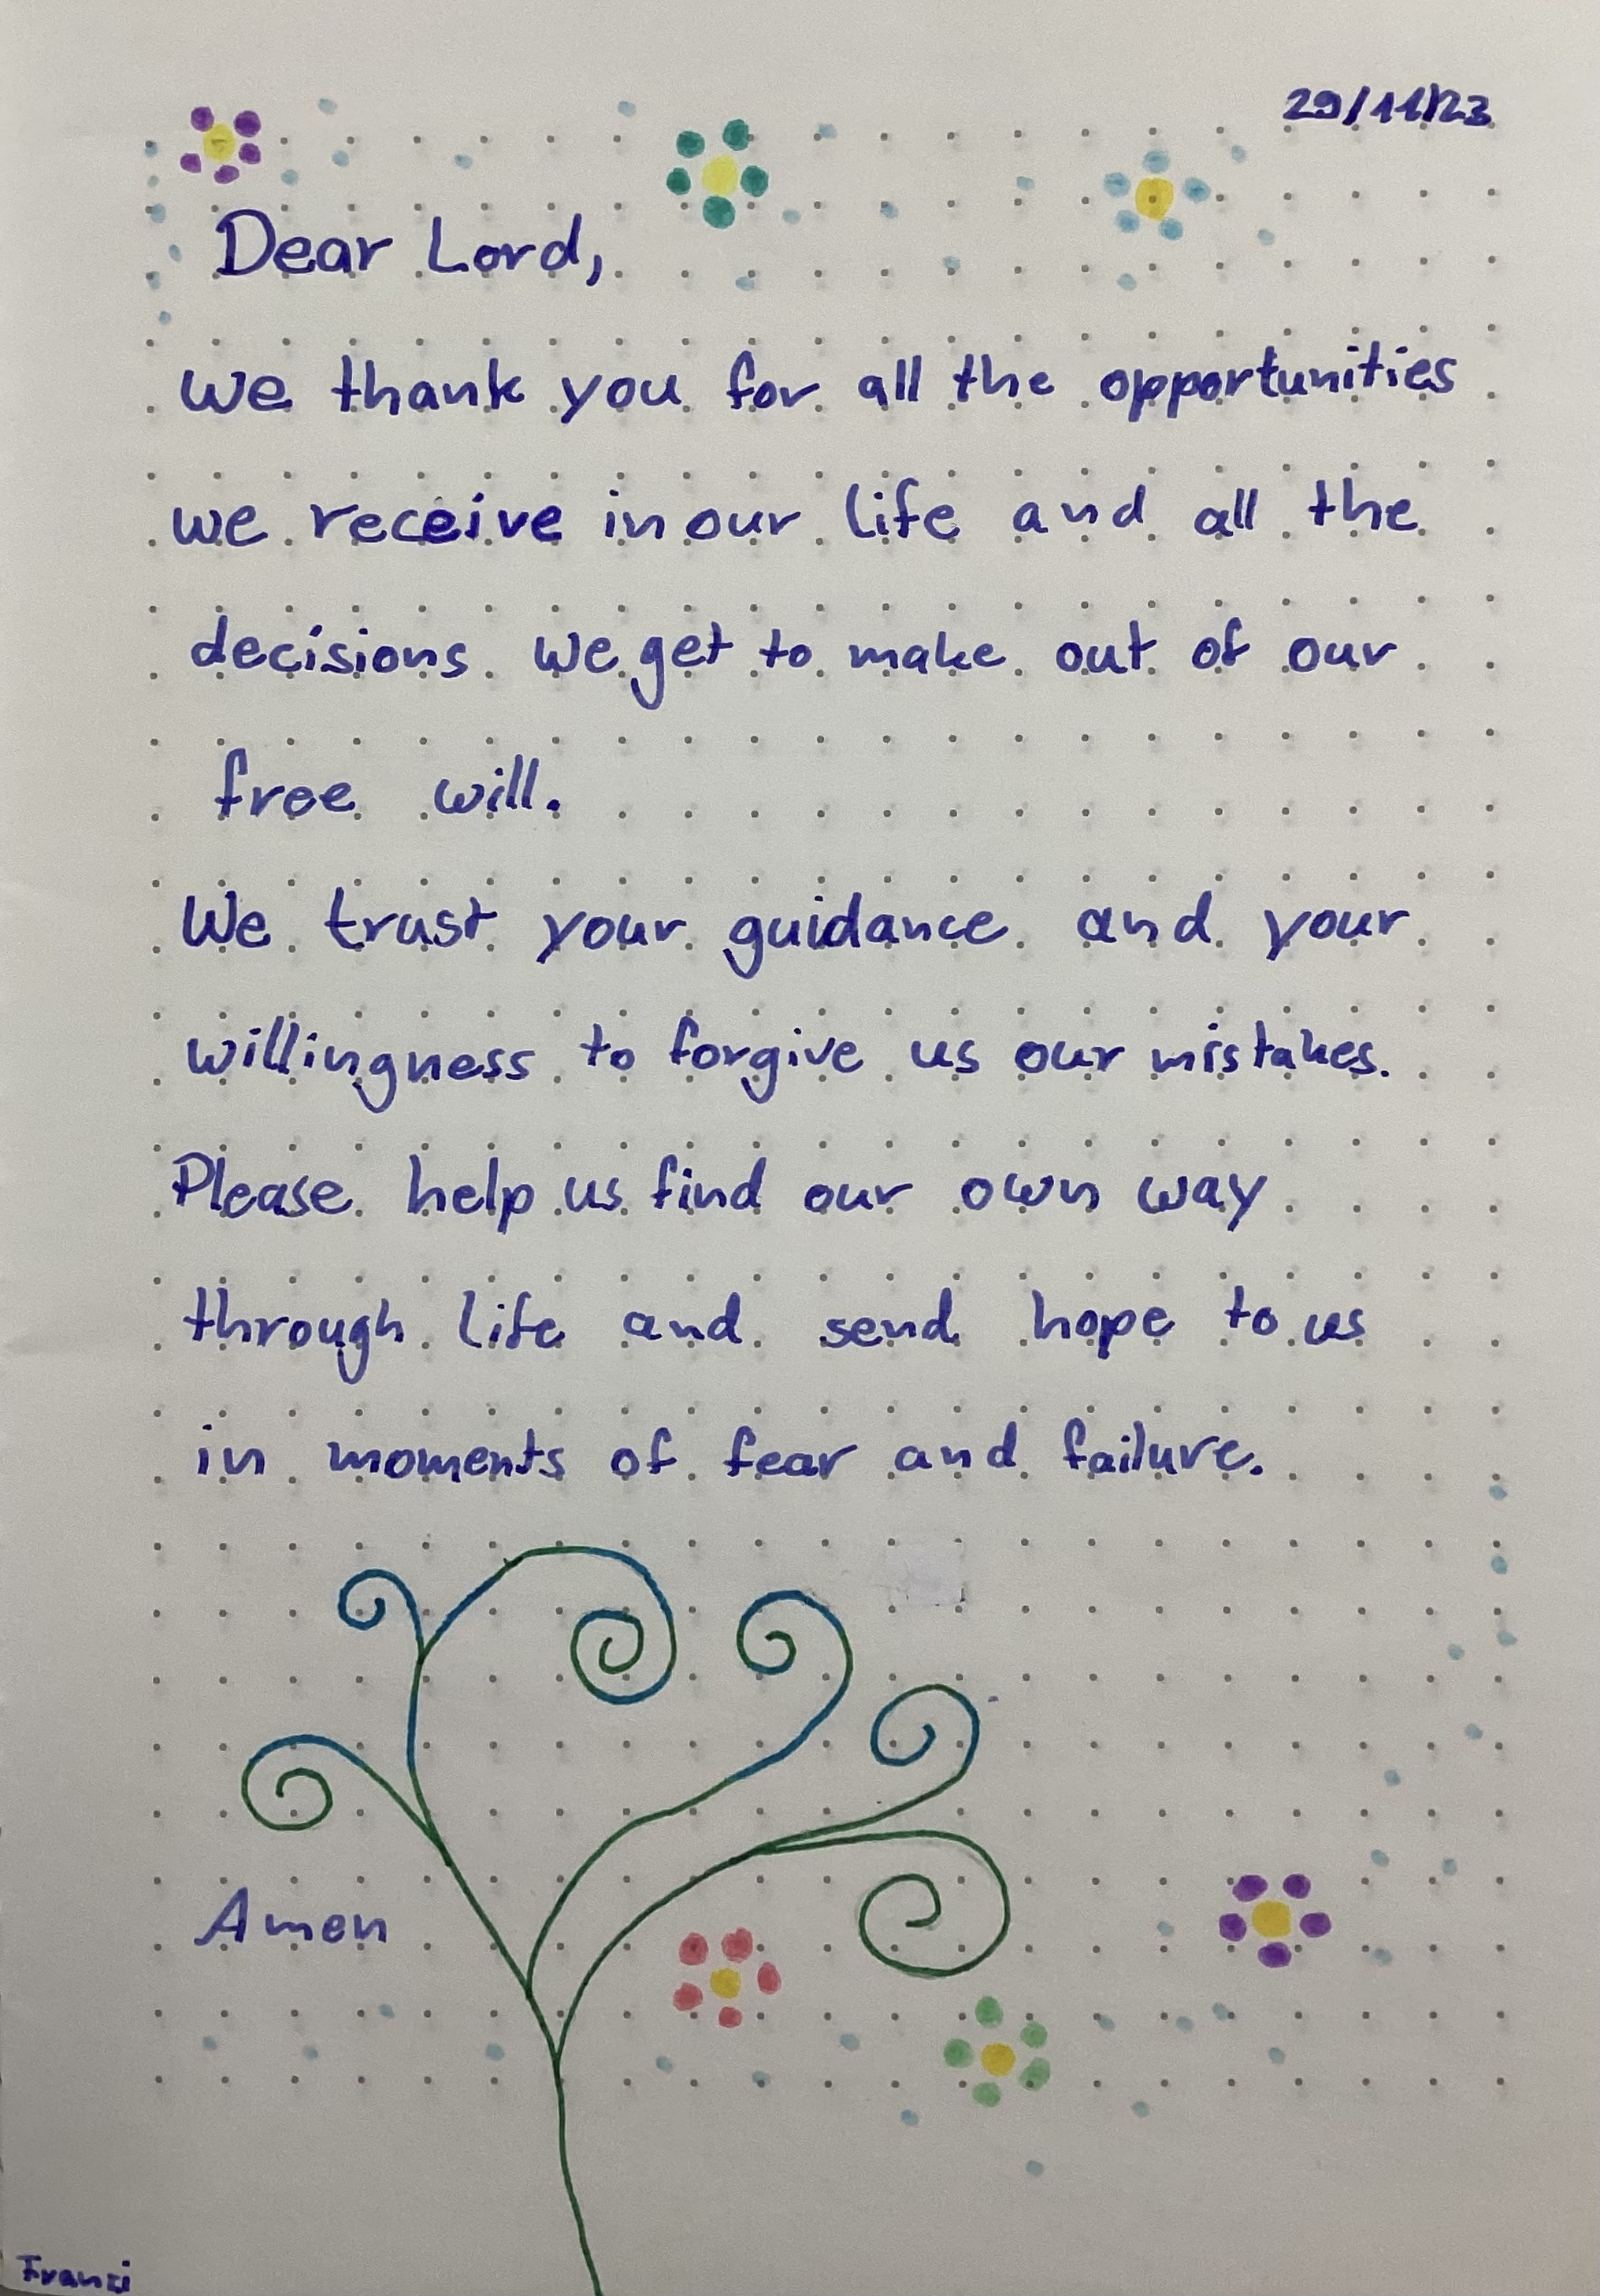 29/11/23
Dear Lord,
we thank you for all the opportunities
we receive in our life and all the
decisions we get to make out of our
free will.
We trust your guidance and your
willingness to forgive us our mistakes.
Please help us find our own way
through life and send hope to us
in moments of fear and failure.
Amen
Franzi